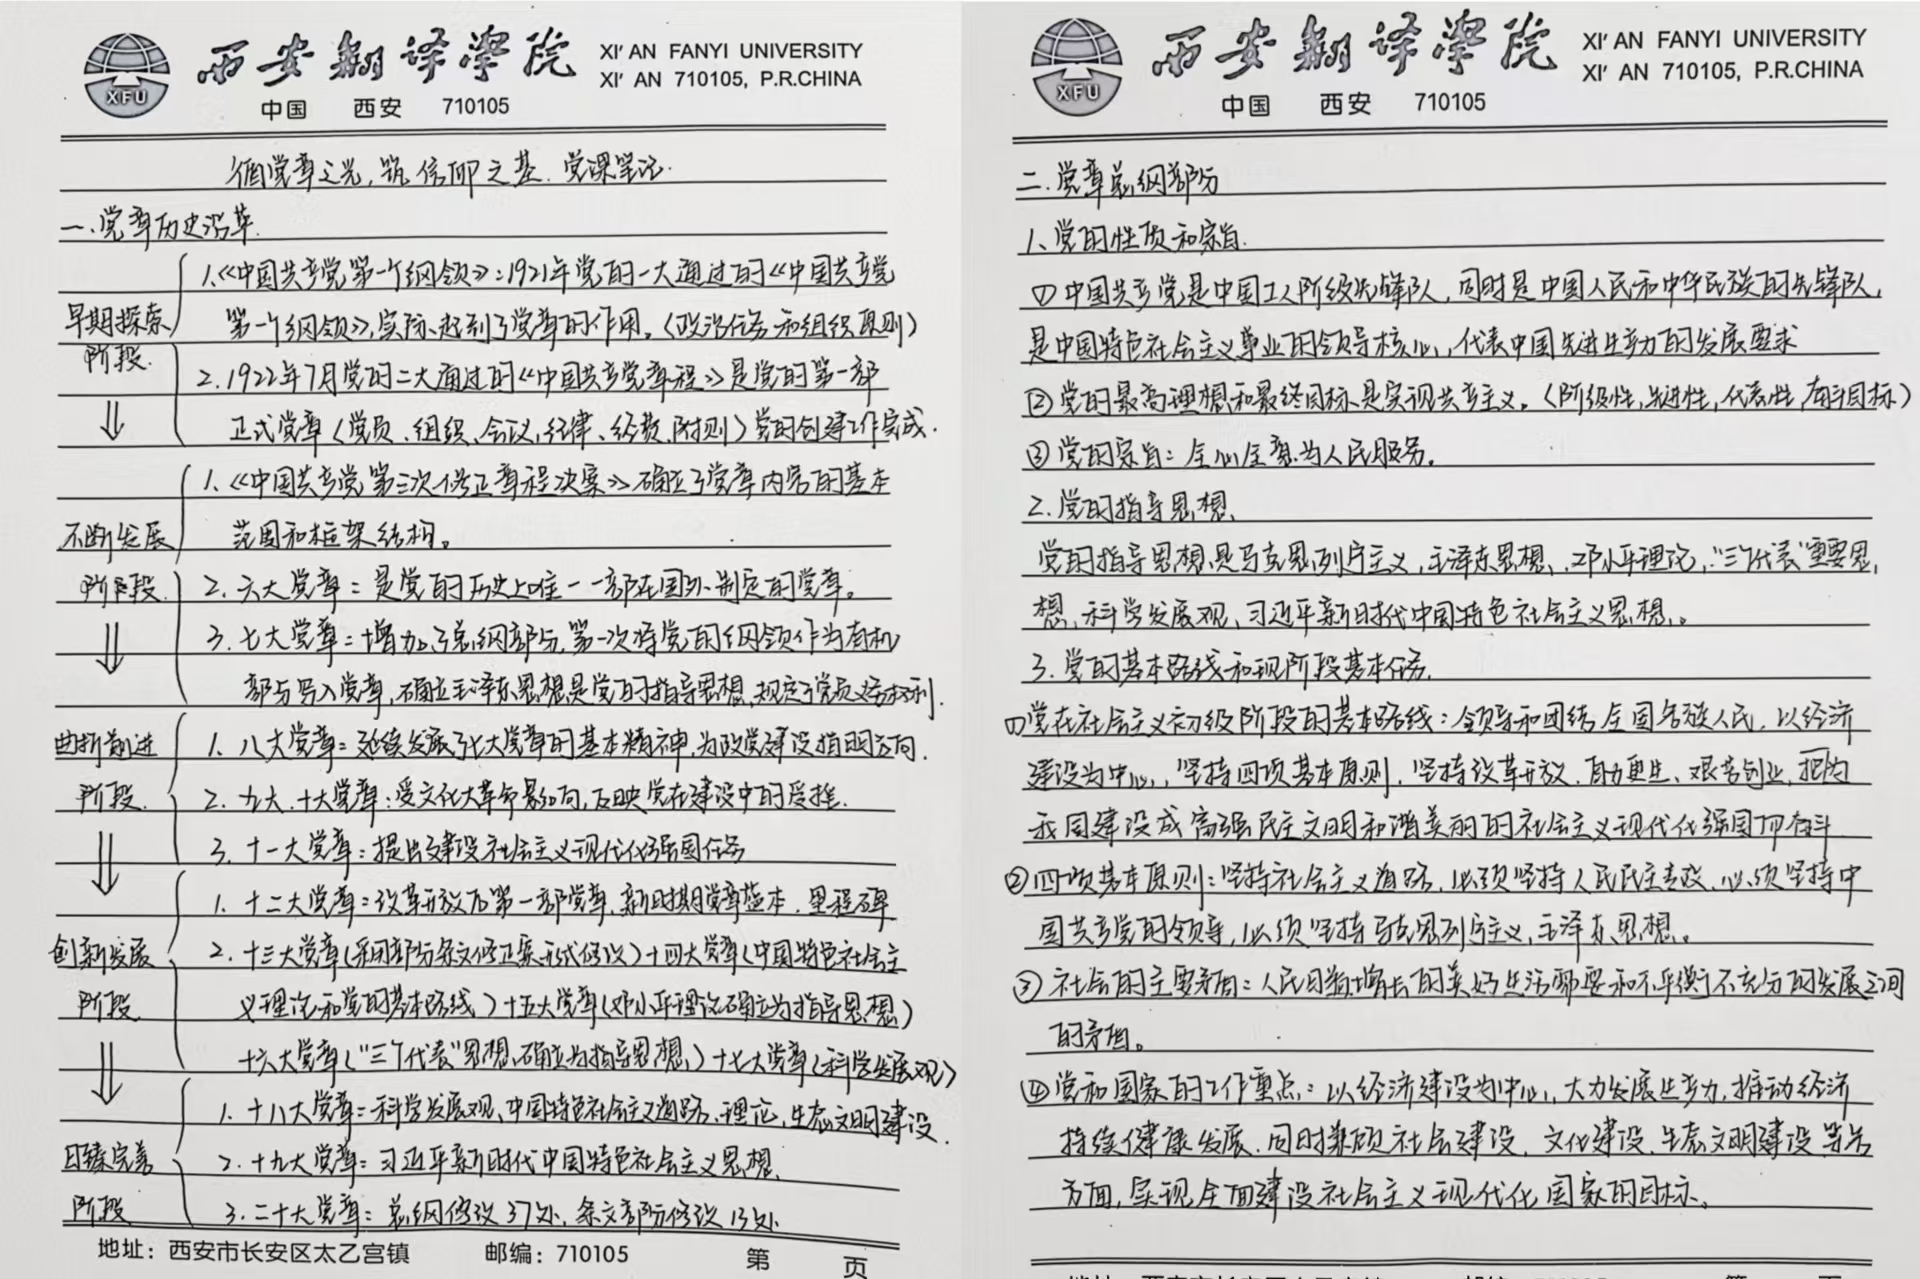 西安翻译学院
XI' AN FANYI UNIVERSITY
XI' AN 710105, P.R.CHINA
中国 西安 710105
循党章之光,筑信仰之基.党课笔记.
一.党章历史沿革.
早期探索阶段.
1.《中国共产党第一个纲领》:1921年党的一大通过的《中国共产党
第一个纲领》,实际起到了党章的作用。(政治任务和组织原则)
2.1922年7月党的二大通过的《中国共产党章程》是党的第一部
正式党章(党员、组织、会议,纪律、经费、附则)党的创建工作完成.
不断发展阶段
1.《中国共产党第三次修正章程决案》确立了党章内容的基本
范围和框架结构。
2.六大党章:是党的历史上唯一一部在国外制定的党章。
3.七大党章:增加了总纲部分,第一次将党的纲领作为有机
部分写入党章,确立毛泽东思想是党的指导思想,规定了党员义务权利.
曲折前进阶段.
1.八大党章:延续发展了七大党章的基本精神,为政党建设指明方向.
2.九大.十大党章:受文化大革命影响,反映党在建设中的受挫.
3.十一大党章:提出建设社会主义现代化强国任务
创新发展阶段
1.十二大党章:改革开放后第一部党章,新时期党章蓝本.里程碑
2.十三大党章(采用部分条文修正案形式修改)十四大党章(中国特色社会主
义理论和党的基本路线)十五大党章(邓小平理论确立为指导思想)
十六大党章("三个代表"思想,确立为指导思想,)十七大党章(科学发展观)
日臻完善阶段
1.十八大党章:科学发展观、中国特色社会主义道路、理论,生态文明建设.
2.十九大党章:习近平新时代中国特色社会主义思想.
3.二十大党章:总纲修改37处,条文部分修改13处.
地址:西安市长安区太乙宫镇 邮编:710105 第 页
西安翻译学院
XI' AN FANYI UNIVERSITY
XI' AN 710105, P.R.CHINA
中国 西安 710105
二.党章总纲部分
1、党的性质和宗旨.
①中国共产党是中国工人阶级先锋队,同时是中国人民和中华民族的先锋队,
是中国特色社会主义事业的领导核心,代表中国先进生产力的发展要求
②党的最高理想和最终目标是实现共产主义。(阶级性,先进性,代表性,奋斗目标)
③党的宗旨:全心全意为人民服务。
2.党的指导思想、
党的指导思想是马克思列宁主义,毛泽东思想、邓小平理论,"三个代表"重要思
想,科学发展观、习近平新时代中国特色社会主义思想。
3.党的基本路线和现阶段基本任务.
①党在社会主义初级阶段的基本路线:领导和团结全国各族人民,以经济
建设为中心,坚持四项基本原则,坚持改革开放,自力更生、艰苦创业,把
我国建设成富强民主文明和谐美丽的社会主义现代化强国而奋斗
②四项基本原则:坚持社会主义道路,必须坚持人民民主专政,必须坚持中
国共产党的领导,必须坚持马克思列宁主义,毛泽东思想。
③社会的主要矛盾:人民日益增长的美好生活需要和不平衡不充分的发展之间
的矛盾。
④党和国家的工作重点:以经济建设为中心,大力发展生产力,推动经济
持续健康发展.同时兼顾社会建设、文化建设、生态文明建设等各
方面,实现全面建设社会主义现代化国家的目标.